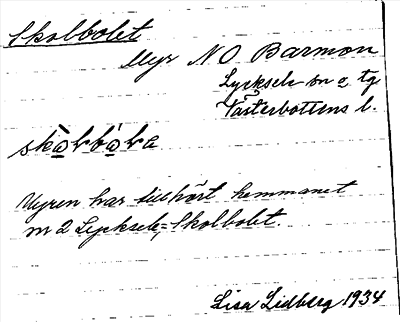 Skolbolet
Myr NO Barmon
Lycksele sn o. tg
Västerbottens l.
Myren har tillhört hemmanet
nr 2 Lycksele, Skolbolet.
Lisa Lidberg 1934